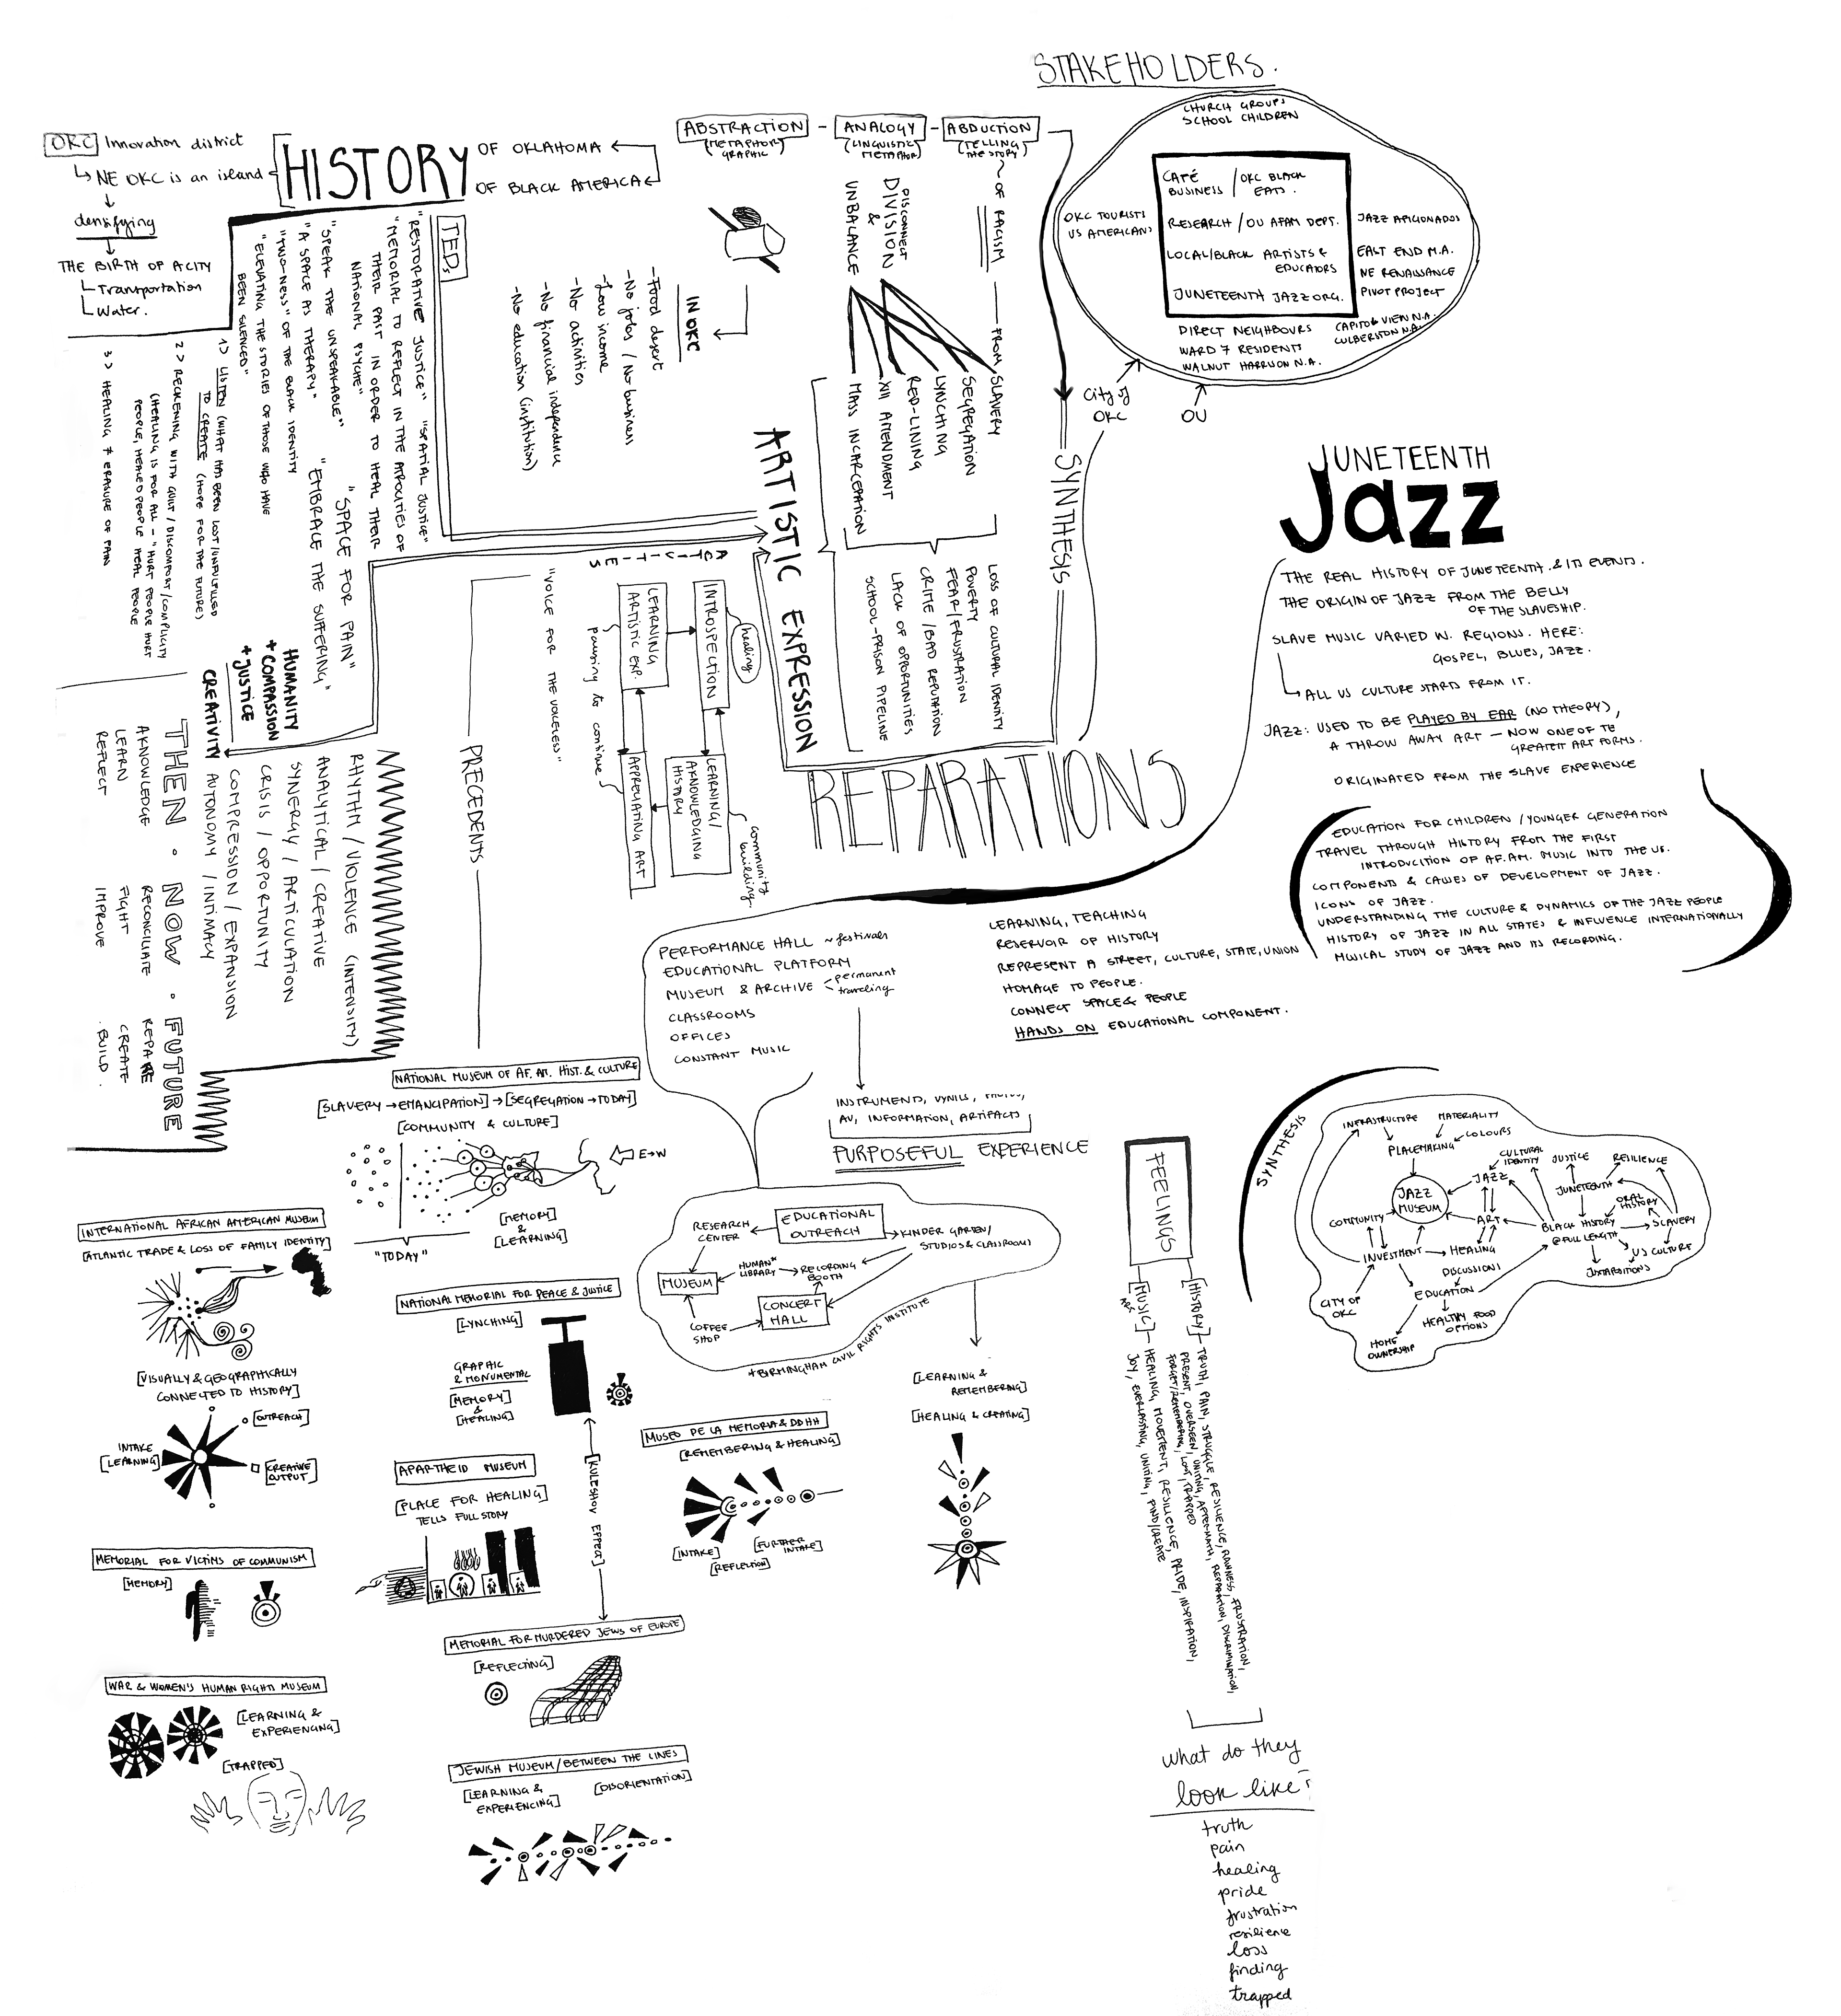 STAKEHOLDERS.
CHURCH GROUPS
SCHOOL CHILDREN
CAFÉ / OKC BLACK
BUSINESS EATS.
RESEARCH / OU AFAM DEPT.
LOCAL/BLACK ARTISTS &
EDUCATORS
JUNETEENTH JAZZ ORG.
OKC TOURISTS
US AMERICANS
JAZZ AFICIONADOS
EAST END M.A.
NE RENAISSANCE
PIVOT PROJECT
CAPITOL VIEW N.A.
CULBERTSON N.A.
DIRECT NEIGHBOURS
WARD 7 RESIDENTS
WALNUT HARRISON N.A.
City of
OKC
OU
OKC Innovation district
NE OKC is an island
densifying
THE BIRTH OF A CITY
Transportation
Water.
HISTORY
OF OKLAHOMA
OF BLACK AMERICA
ABSTRACTION - ANALOGY - ABDUCTION
(METAPHOR)
GRAPHIC
(LINGUISTIC
METAPHOR)
(TELLING
THE STORY)
OF RACISM
FROM
DISCONNECT
DIVISION
&
UNBALANCE
SLAVERY
SEGREGATION
LYNCHING
RED-LINING
XIII AMENDMENT
MASS INCARCERATION
LOSS OF CULTURAL IDENTITY
POVERTY
FEAR/FRUSTRATION
CRIME/BAD REPUTATION
LACK OF OPPORTUNITIES
SCHOOL-PRISON PIPELINE
IN OKC
-Food desert
-No jobs / No business
-Low income
-No activities
-No financial independence
-No education (institution)
TEDs
"RESTORATIVE JUSTICE" "SPATIAL JUSTICE"
"MEMORIAL TO REFLECT IN THE ATROCITIES OF
THEIR PAST IN ORDER TO HEAL THEIR
NATIONAL PSYCHE"
"SPEAK THE UNSPEAKABLE" "SPACE FOR PAIN"
"A SPACE AS THERAPY" "EMBRACE THE SUFFERING"
"TWO-NESS" OF THE BLACK IDENTITY
"ELEVATING THE STORIES OF THOSE WHO HAVE
BEEN SILENCED"
1> LISTEN (WHAT HAS BEEN LOST/UNFULFILLED
TO CREATE (HOPE FOR THE FUTURE)
2> RECKENING WITH GUILT / DISCOMFORT/COMPLICITY
(HEALING IS FOR ALL - "HURT PEOPLE HURT
PEOPLE, HEALED PEOPLE HEAL PEOPLE
3> HEALING ≠ ERASURE OF PAIN
HUMANITY
+ COMPASSION
+ JUSTICE
CREATIVITY
SYNTHESIS
ARTISTIC EXPRESSION
REPARATIONS
healing
INTROSPECTION
LEARNING
ARTISTIC EXP.
LEARNING/
AKNOWLEDGING
HISTORY
APPRECIATING ART
community
building
pausing to continue
"VOICE FOR THE VOICELESS"
PRECEDENTS
RHYTHM / VIOLENCE (INTENSITY)
ANALYTICAL / CREATIVE
SYNERGY / ARTICULATION
CRISIS / OPPORTUNITY
COMPRESSION / EXPANSION
AUTONOMY / INTIMACY
THEN . NOW . FUTURE
AKNOWLEDGE RECONCILIATE REPAIRE
LEARN FIGHT CREATE
REFLECT IMPROVE BUILD.
JUNETEENTH
Jazz
THE REAL HISTORY OF JUNETEENTH & ITS EVENTS.
THE ORIGIN OF JAZZ FROM THE BELLY
OF THE SLAVESHIP.
SLAVE MUSIC VARIED W. REGIONS. HERE:
GOSPEL, BLUES, JAZZ.
ALL US CULTURE STARTS FROM IT.
JAZZ: USED TO BE PLAYED BY EAR (NO THEORY),
A THROW AWAY ART — NOW ONE OF TE
GREATEST ART FORMS.
ORIGINATED FROM THE SLAVE EXPERIENCE
EDUCATION FOR CHILDREN / YOUNGER GENERATION
TRAVEL THROUGH HISTORY FROM THE FIRST
INTRODUCTION OF AF.AM. MUSIC INTO THE US.
COMPONENTS & CAUSES OF DEVELOPMENT OF JAZZ.
ICONS OF JAZZ.
UNDERSTANDING THE CULTURE & DYNAMICS OF THE JAZZ PEOPLE
HISTORY OF JAZZ IN ALL STATES & INFLUENCE INTERNATIONALLY
MUSICAL STUDY OF JAZZ AND ITS RECORDING.
LEARNING, TEACHING
RESERVOIR OF HISTORY
REPRESENT A STREET, CULTURE, STATE, UNION
HOMAGE TO PEOPLE.
CONNECT SPACE & PEOPLE
HANDS ON EDUCATIONAL COMPONENT.
PERFORMANCE HALL ~festivals
EDUCATIONAL PLATFORM
MUSEUM & ARCHIVE permanent
traveling
CLASSROOMS
OFFICES
CONSTANT MUSIC
INSTRUMENTS, VYNILS,
AV, INFORMATION, ARTIFACTS
PURPOSEFUL EXPERIENCE
RESEARCH
CENTER
EDUCATIONAL
OUTREACH
KINDER GARTEN/
STUDIOS & CLASSROOMS
MUSEUM
HUMAN
LIBRARY
RECORDING
BOOTH
CONCERT
HALL
COFFEE
SHOP
+BIRMINGHAM CIVIL RIGHTS INSTITUTE
[LEARNING &
REMEMBERING]
[HEALING & CREATING]
NATIONAL MUSEUM OF AF. AM. HIST. & CULTURE
[SLAVERY → EMANCIPATION] → [SEGREGATION → TODAY]
[COMMUNITY & CULTURE]
E→W
[MEMORY
&
LEARNING]
"TODAY"
INTERNATIONAL AFRICAN AMERICAN MUSEUM
[ATLANTIC TRADE & LOSS OF FAMILY IDENTITY]
[VISUALLY & GEOGRAPHICALLY
CONNECTED TO HISTORY]
[OUTREACH]
INTAKE
[LEARNING]
[CREATIVE
OUTPUT]
NATIONAL MEMORIAL FOR PEACE & JUSTICE
[LYNCHING]
GRAPHIC
& MONUMENTAL
[MEMORY]
&
[HEALING]
[KULESHOV EFFECT]
APARTHEID MUSEUM
[PLACE FOR HEALING]
TELLS FULL STORY
MUSEO DE LA MEMORIA & DDHH
[REMEMBERING & HEALING]
[INTAKE]
[REFLECTION]
[FURTHER
INTAKE]
MEMORIAL FOR VICTIMS OF COMMUNISM
[MEMORY]
MEMORIAL FOR MURDERED JEWS OF EUROPE
[REFLECTING]
WAR & WOMEN'S HUMAN RIGHTS MUSEUM
[LEARNING &
EXPERIENCING]
[TRAPPED]
JEWISH MUSEUM/BETWEEN THE LINES
[LEARNING &
EXPERIENCING]
[DISORIENTATION]
FEELINGS
[HISTORY] - TRUTH, PAIN, STRUGGLE, RESILIENCE, RAWNESS, FRUSTRATION,
PRESENT, OVERSEEN, UNITING, AFTERMATH, REPARATION, DISCRIMINATION,
FORGET/REMEMBERING, LOST, TRAPPED
[MUSIC] - HEALING, MOVEMENT, RESILIENCE, PRIDE, INSPIRATION,
ART
JOY, EVERLASTING, UNITING, FIND/CREATE
what do they
look like?
truth
pain
healing
pride
frustration
resilience
loss
finding
trapped
SYNTHESIS
INFRASTRUCTURE
MATERIALITY
COLOURS
PLACEMAKING
JAZZ
MUSEUM
JAZZ
CULTURAL
IDENTITY
JUSTICE
RESILIENCE
JUNETEENTH
ORAL
HISTORY
COMMUNITY
ART
BLACK HISTORY
@ FULL LENGTH
SLAVERY
INVESTMENT
HEALING
US CULTURE
DISCUSSIONS
JUXTAPOSITIONS
EDUCATION
CITY OF
OKC
HEALTHY FOOD
OPTIONS
HOME
OWNERSHIP